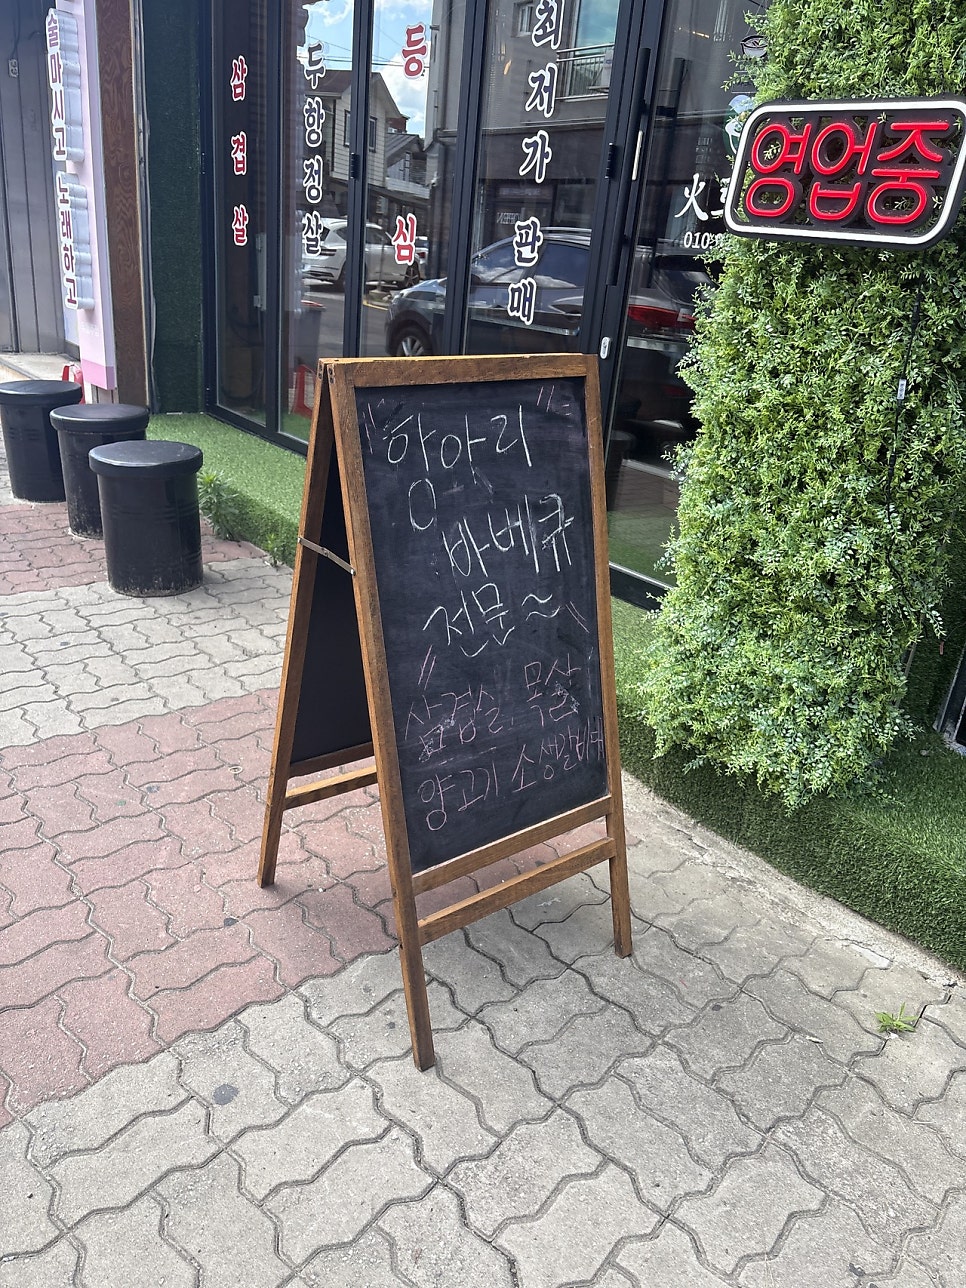 술마시고 노래하고
삼겹살
두항정살
등심
최저가 판매
영업중
火
010
OPEN
"항아리"
바베큐
전문~
"삼겹살, 목살"
양고기 소생갈비